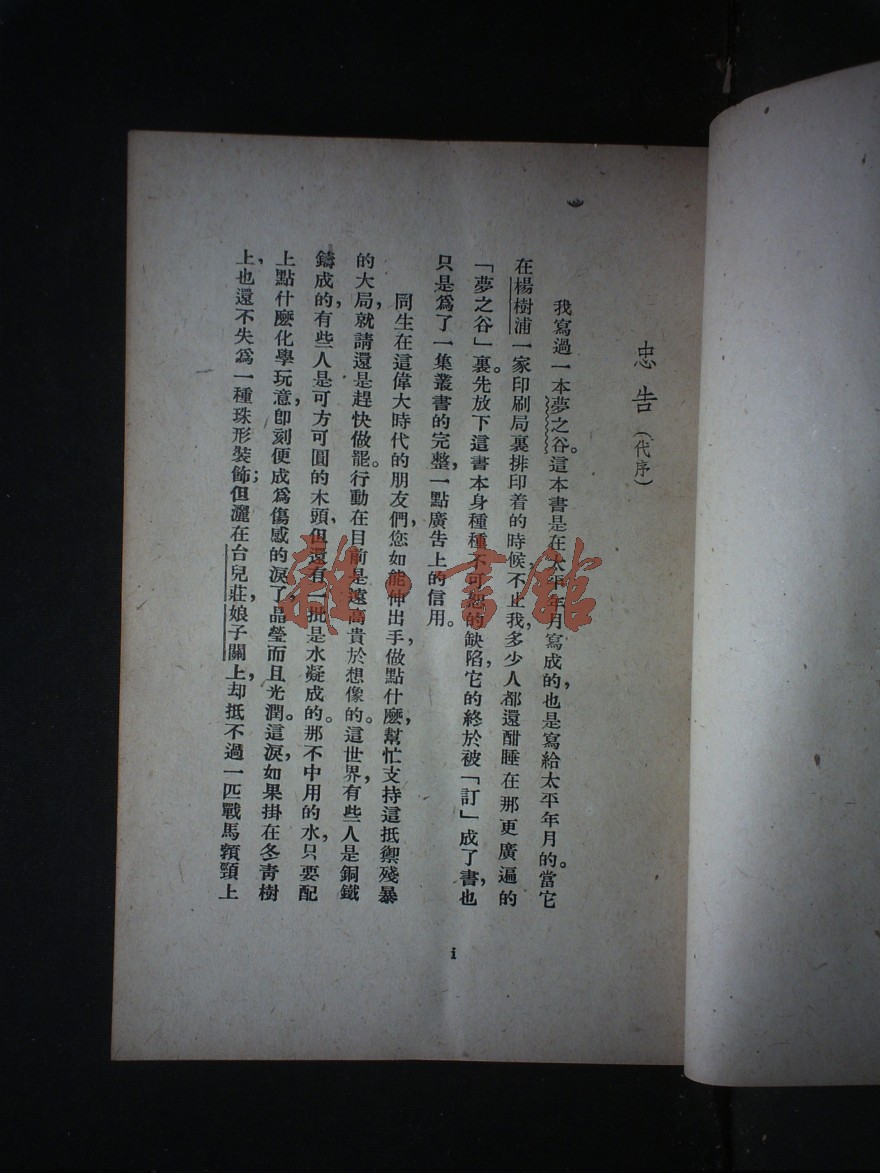 忠告（代序）
我寫過一本夢之谷。這本書是在太平年月寫成的，也是寫給太平年月的。當它
在楊樹浦一家印刷局裏排印着的時候，不止我，多少人都還酣睡在那更廣遍的
「夢之谷」裏。先放下這書本身種種不可恕的缺陷，它的終於被「訂」成了書，也
只是爲了一集叢書的完整，一點廣告上的信用。
同生在這偉大時代的朋友們，您如能伸出手，做點什麽，幫忙支持這抵禦殘暴
的大局，就請還是趕快做罷。行動在目前是遠高貴於想像的。這世界，有些人是銅鐵
鑄成的，有些人是可方可圓的木頭，但還有一批是水凝成的。那不中用的水，只要配
上點什麽化學玩意，卽刻便成爲傷感的淚了，晶瑩而且光潤。這淚，如果掛在冬靑樹
上，也還不失爲一種珠形裝飾；但灑在台兒莊，娘子關上，却抵不過一匹戰馬頸上
i
雜·書館